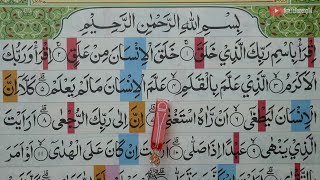 بِسْمِ اللّٰهِ الرَّحْمٰنِ الرَّحِيْمِ
اِقْرَأْ بِاسْمِ رَبِّكَ الَّذِيْ خَلَقَ ۝١ خَلَقَ الْاِنْسَانَ مِنْ عَلَقٍ ۝٢ اِقْرَأْ وَرَبُّكَ
الْاَكْرَمُ ۝٣ الَّذِيْ عَلَّمَ بِالْقَلَمِ ۝٤ عَلَّمَ الْاِنْسَانَ مَا لَمْ يَعْلَمْ ۝٥ كَلَّا اِنَّ
الْاِنْسَانَ لَيَطْغٰى ۝٦ اَنْ رَّاٰهُ اسْتَغْنٰى ۝٧ اِنَّ اِلٰى رَبِّكَ الرُّجْعٰى ۝٨ اَرَاَيْتَ
الَّذِيْ يَنْهٰى ۝٩ عَبْدًا اِذَا صَلّٰى ۝١٠ اَرَاَيْتَ اِنْ كَانَ عَلَى الْهُدٰى ۝١١ اَوْ اَمَرَ